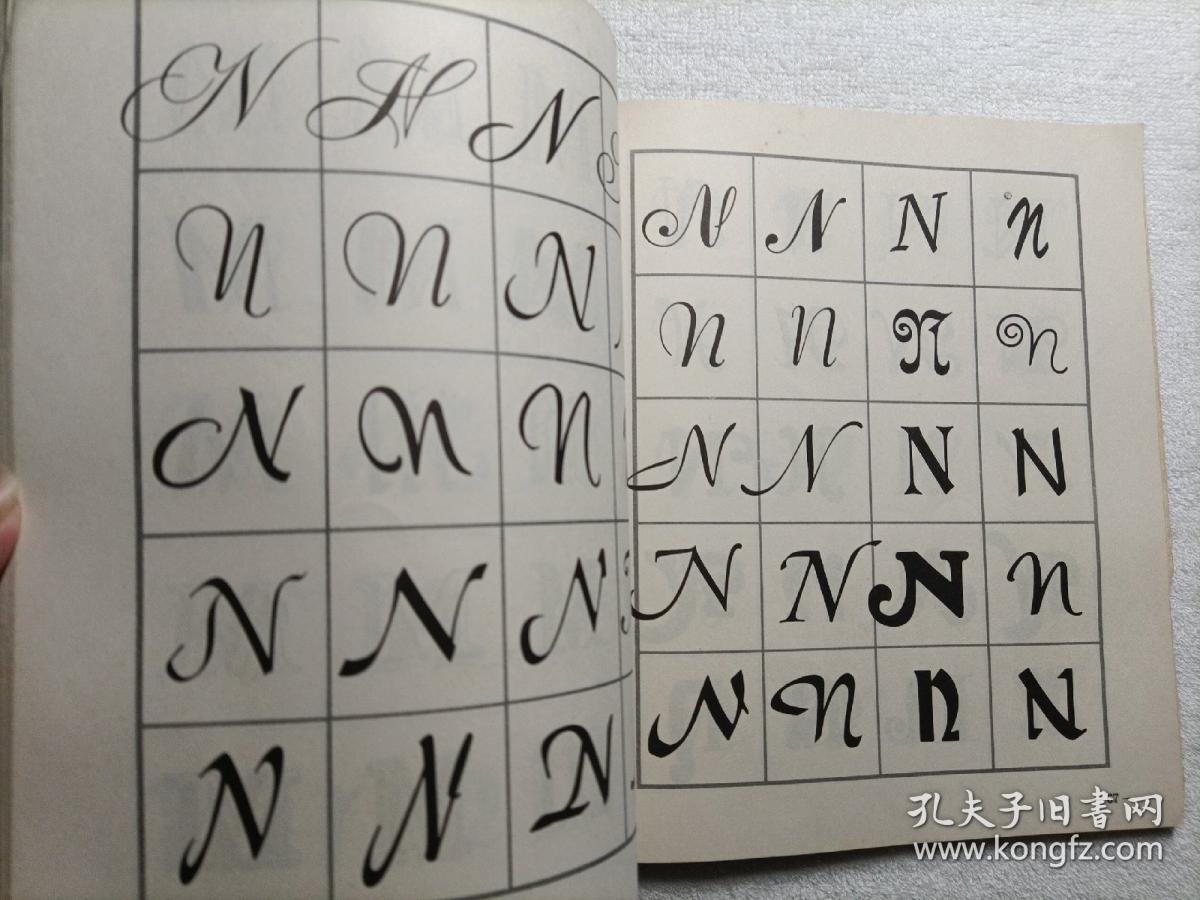 N N N
N N N
N N N
N N N
N N N
N N N N
N N N N
N N N N
N N N N
N N N N
孔夫子旧书网
www.kongfz.com